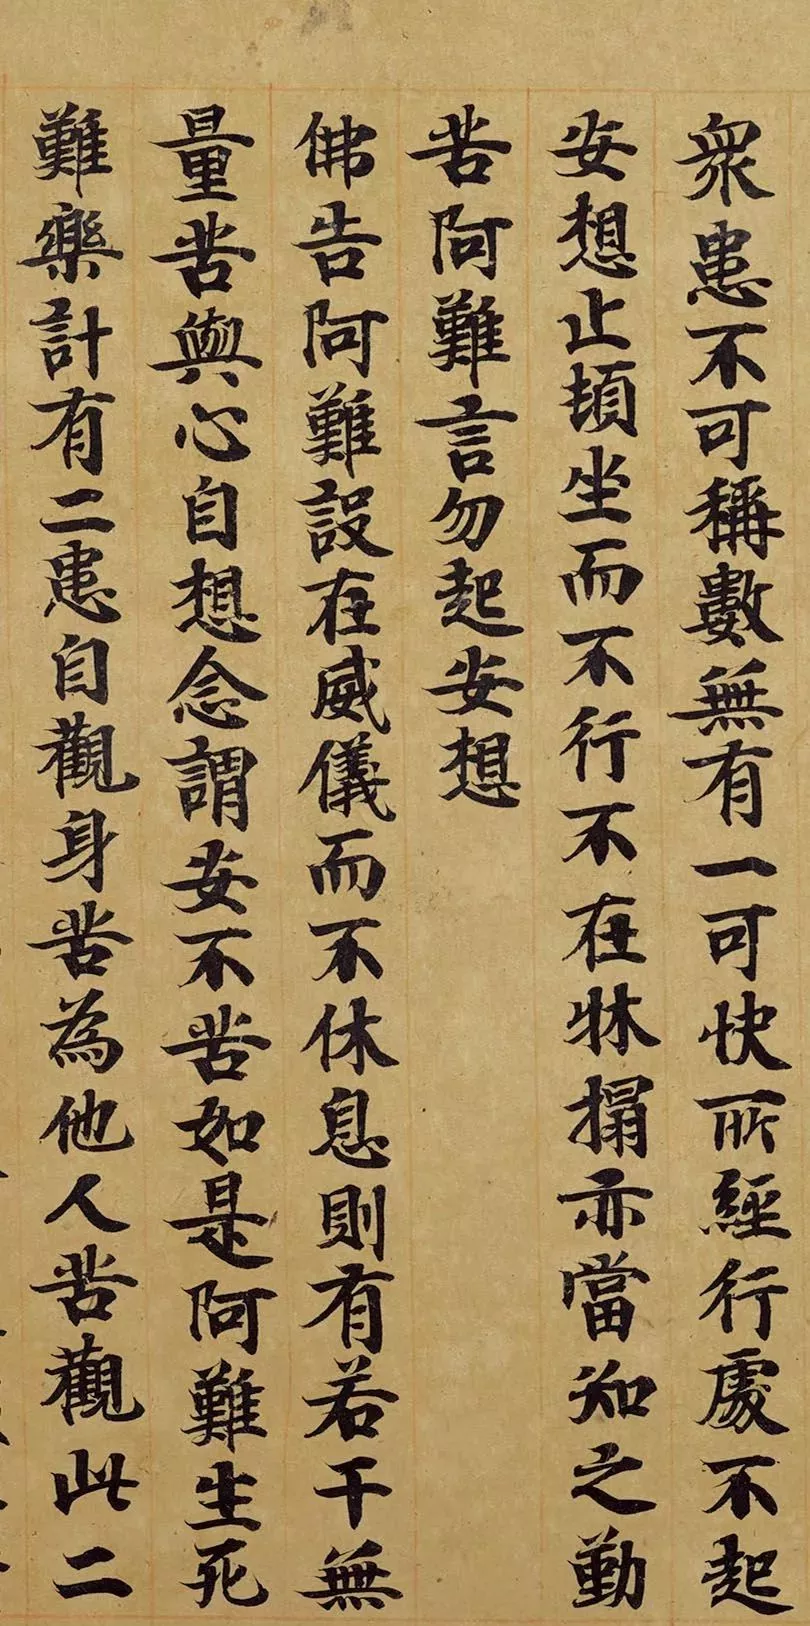 衆患不可稱數無有一可快所經行處不起
安想止頓坐而不行不在牀搨亦當知之勤
苦阿難言勿起安想
佛告阿難設在威儀而不休息則有若干無
量苦與心自想念謂安不苦如是阿難生死
難樂計有二患自觀身苦為他人苦觀此二